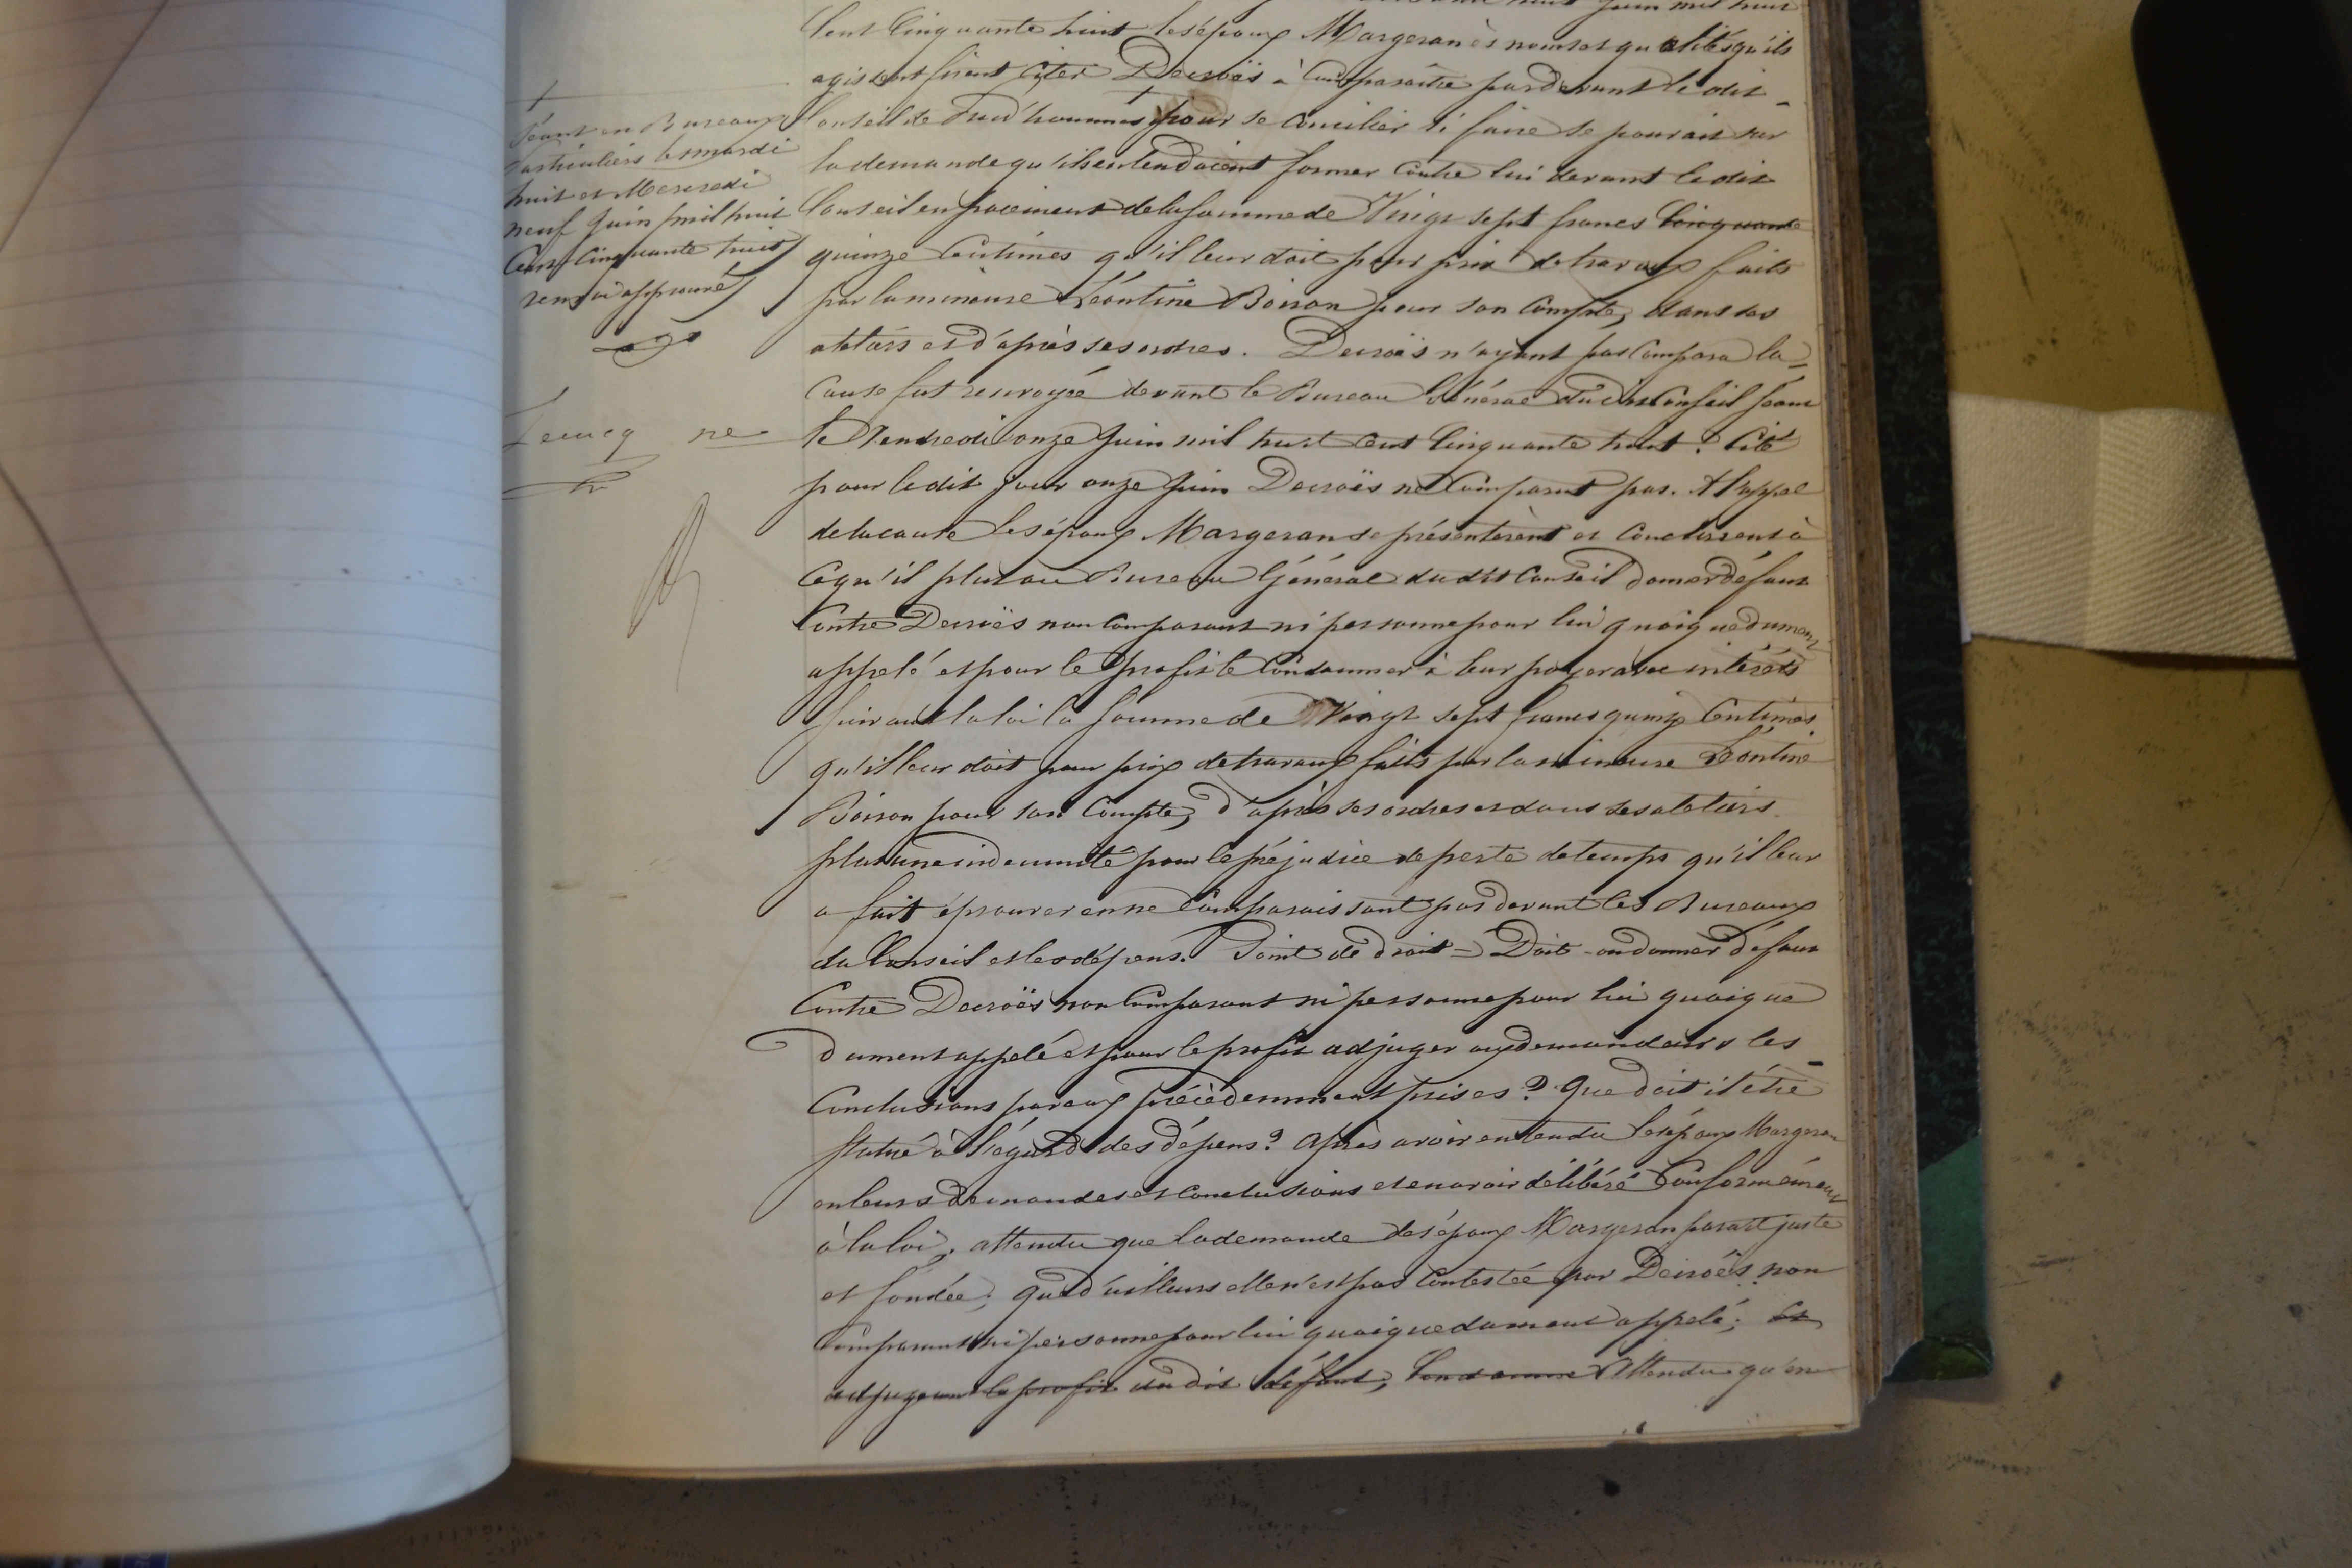 Cent Cinquante huit les époux Margeran ès noms et qualités qu'ils
agissent firent citer Decroës à Comparaître par devant le dit
Conseil de Prud'hommes pour se concilier si faire se pouvait sur
la demande qu'ils entendaient former Contre lui devant le dit
Conseil en paiement de la somme de Vingt sept francs Cinquante
quinze Centimes qu'il leur doit pour prix de travaux faits
par la mineure Léontine Boison pour son Compte, dans ses
ateliers et d'après ses ordres. Decroës n'ayant pas Comparu la
Cause fut renvoyée devant le Bureau Général du dit Conseil séant
le Vendredi onze Juin mil huit Cent Cinquante huit. Cité
pour le dit jour onze Juin Decroës ne Comparut pas. A l'appel
de la cause les époux Margeran se présentèrent et Conclurent à
Ce qu'il plut au Bureau Général du dit Conseil donner défaut
Contre Decroës non Comparant ni personne pour lui quoique dument
appelé et pour le profit le Condamner à leur payer avec intérêts
suivant la loi la somme de Vingt sept francs quinze Centimes
qu'il leur doit pour prix de travaux faits par la mineure Léontine
Boison pour son Compte, d'après ses ordres et dans ses ateliers
plus une indemnité pour le préjudice de perte de temps qu'il leur
a fait éprouver en ne Comparaissant pas devant les Bureaux
du Conseil et les dépens. Point de droit = Doit-on donner défaut
Contre Decroës non Comparant ni personne pour lui quoique
dument appelé et pour le profit adjuger aux demandeurs les
Conclusions par eux précèdemment prises? Que doit il être
statué à l'égard des dépens? Après avoir entendu les époux Margeran
en leurs demandes et Conclusions et en avoir délibéré Conformément
à la loi; attendu que la demande des époux Margeran parait juste
et fondée; que d'ailleurs elle n'est pas Contestée par Decroës non
Comparant ni personne pour lui quoique dument appelé; Et
adjugeant le profit du dit défaut, Condamne Attendu qu'en
séant en Bureaux
Particuliers les mardi
huit et Mercredi
neuf Juin mil huit
Cent Cinquante huit
renvoi approuvé
Lecucq